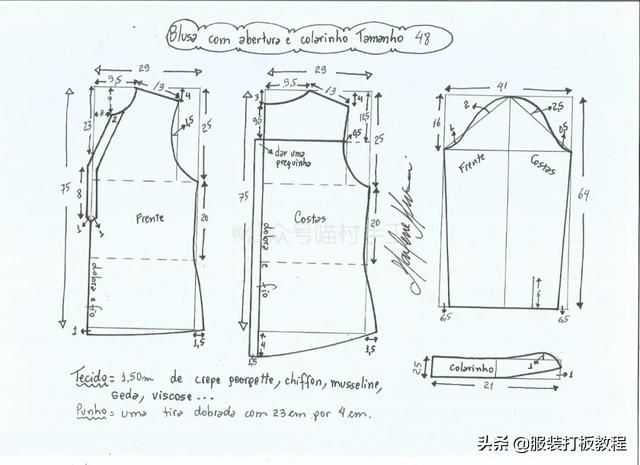 Blusa com abertura e colarinho Tamanho 48
29
9,5
13
4
3
2
23
1,5
25
75
8
1
1
Frente
20
dobra e fio
1
1,5
29
9,5
13
4
3
9,5
12,5
0,5
dar uma preguinha
25
75
Costas
20
dobra e fio
4
1,5
1,5
41
16
2
2,5
1
0,5
Frente
Costas
64
6
6,5
6,5
2,5
Colarinho
1
1
21
Tecido = 1,50m de crepe georgette, chiffon, musseline,
seda, viscose...
Punho = uma tira dobrada com 23 cm por 4 cm.
头条 @服装打板教程